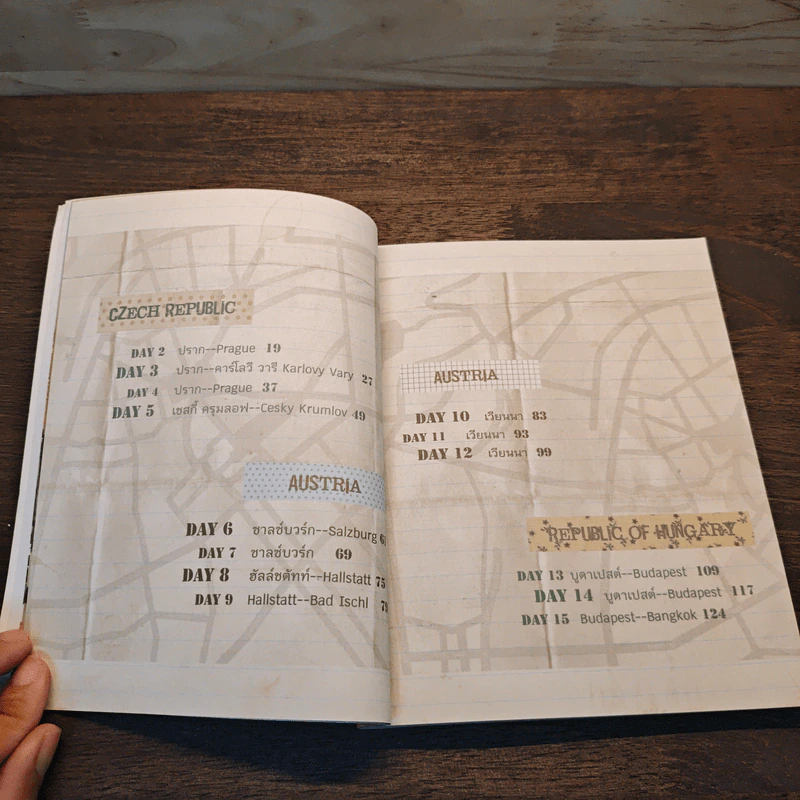 CZECH REPUBLIC
DAY 2 ปราก--Prague 19
DAY 3 ปราก--คาร์โลวี วารี Karlovy Vary 27
DAY 4 ปราก--Prague 37
DAY 5 เชสกี้ ครุมลอฟ--Cesky Krumlov 49
AUSTRIA
DAY 6 ซาลซ์บวร์ก--Salzburg
DAY 7 ซาลซ์บวร์ก 69
DAY 8 ฮัลล์ชตัทท์--Hallstatt 75
DAY 9 Hallstatt--Bad Ischl 79
AUSTRIA
DAY 10 เวียนนา 83
DAY 11 เวียนนา 93
DAY 12 เวียนนา 99
REPUBLIC OF HUNGARY
DAY 13 บูดาเปสต์--Budapest 109
DAY 14 บูดาเปสต์--Budapest 117
DAY 15 Budapest--Bangkok 124